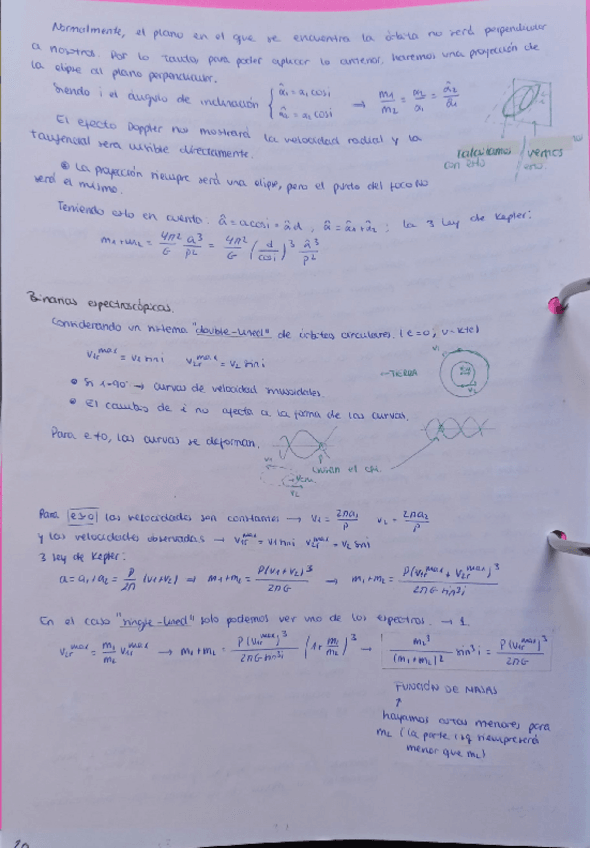 Normalmente, el plano en el que se encuentra la órbita no será perpendicular
a nosotros. Por lo tanto, para poder aplicar lo anterior, haremos una proyección de
la elipse al plano perpendicular.
Siendo i el ángulo de inclinación { â₁ = a₁ cosi  â₂ = a₂ cosi → m₁/m₂ = a₂/a₁ = â₂/â₁
El efecto Doppler nos mostrará la velocidad radial y la
tangencial será visible directamente.
calculamos con esto
vemos eso.
• La proyección siempre será una elipse, pero el punto del foco NO
será el mismo.
Teniendo esto en cuenta: â = a cosi = âd ; â = â₁ + â₂ ; la 3 ley de Kepler:
m₁+m₂ = 4π²/G a³/P² = 4π²/G (d/cosi)³ â³/P²
Binarias espectroscópicas.
Considerando un sistema "double-lined" de órbitas circulares. (e=0; v=kte)
v₁r^max = v₁ sin i   v₂r^max = v₂ sin i
← TIERRA
v₁
v₂
• Si i=90° → curvas de velocidad sinusoidales.
• El cambio de i no afecta a la forma de las curvas.
Para e≠0, las curvas se deforman.
v₂
Para e≈0 las velocidades son constantes → v₁ = 2πa₁/P   v₂ = 2πa₂/P
y las velocidades observadas → v₁r^max = v₁ sin i   v₂r^max = v₂ sin i
3 ley de Kepler:
a = a₁+a₂ = P/2π (v₁+v₂) → m₁+m₂ = P(v₁+v₂)³/2πG → m₁+m₂ = P(v₁r^max + v₂r^max)³/2πG sin³i
En el caso "single-lined" solo podemos ver uno de los espectros. → 1
v₂r^max = m₁/m₂ v₁r^max → m₁+m₂ = P(v₁r^max)³/2πG sin³i (1+ m₁/m₂)³ → m₂³/(m₁+m₂)² sin³i = P(v₁r^max)³/2πG
FUNCIÓN DE MASAS
↑
hayamos cotas menores para
m₂ (la parte izq siempre será
menor que m₂)